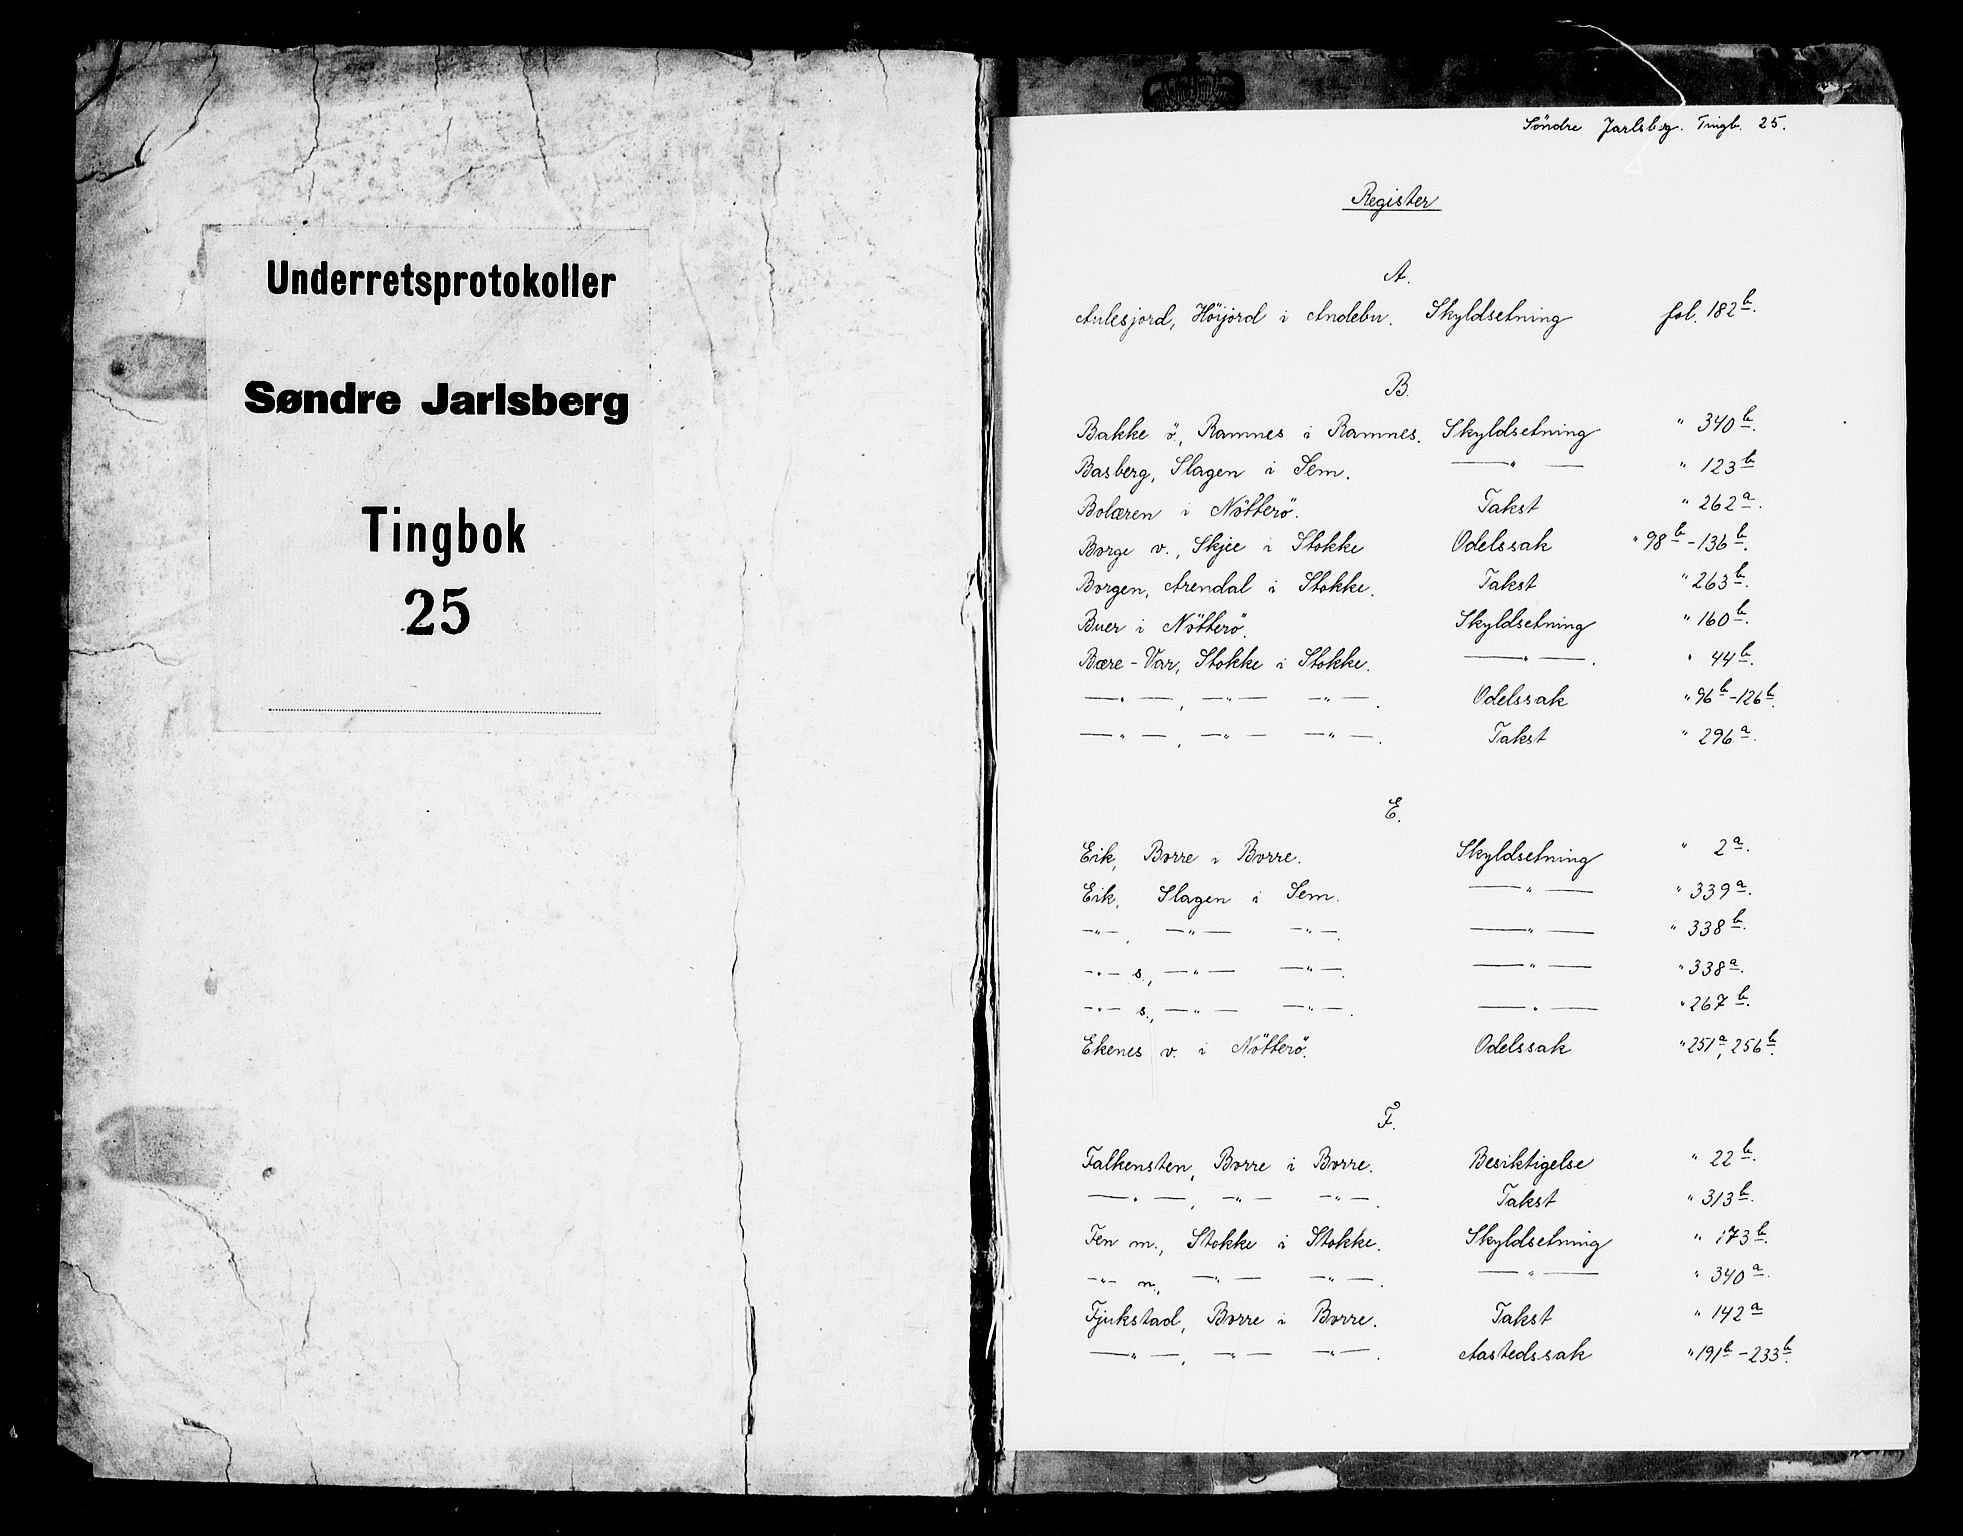 Underretsprotokoller
Søndre Jarlsberg
Tingbok
25
Söndre Jarlsberg. Tingb. 25.
Register
A.
Aulesjord, Höijord i Andebu. Skyldsetning fol. 182 b.
B.
Bakke ö., Ramnes i Ramnes. Skyldsetning " 340 b.
Basberg, Slagen i Sem. — " — " 123 b
Bolæren i Nötterö. Takst " 262 a.
Borge v., Skjee i Stokke Odelssak " 98 b - 136 b.
Borgen, Arendal i Stokke. Takst " 263 b.
Buer i Nötterö. Skyldsetning " 160 b.
Bære - Var, Stokke i Stokke. — " —. " 44 b.
— " —, — " — — " —. Odelssak " 96 b - 126 b.
— " —, — " — — " —. Takst " 296 a.
E.
Eik, Borre i Borre. Skyldsetning " 2 a.
Eik, Slagen i Sem. — " — " 339 a.
— " —, — " — — " —. — " — " 338 b.
— " — s., — " — — " —. — " — " 338 a.
— " — s., — " — — " —. — " — " 267 b.
Ekenes v. i Nötterö. Odelssak " 251 a, 256 b.
F.
Falkensten, Borre i Borre. Besiktigelse " 22 b.
— " —, — " — — " —. Takst " 313 b.
Fen m., Stokke i Stokke. Skyldsetning " 173 b.
— " — n., — " — — " —. — " — " 340 a.
Fjukstad, Borre i Borre. Takst " 142 a
— " —, — " — — " —. Aastedssak " 191 b - 233 b.